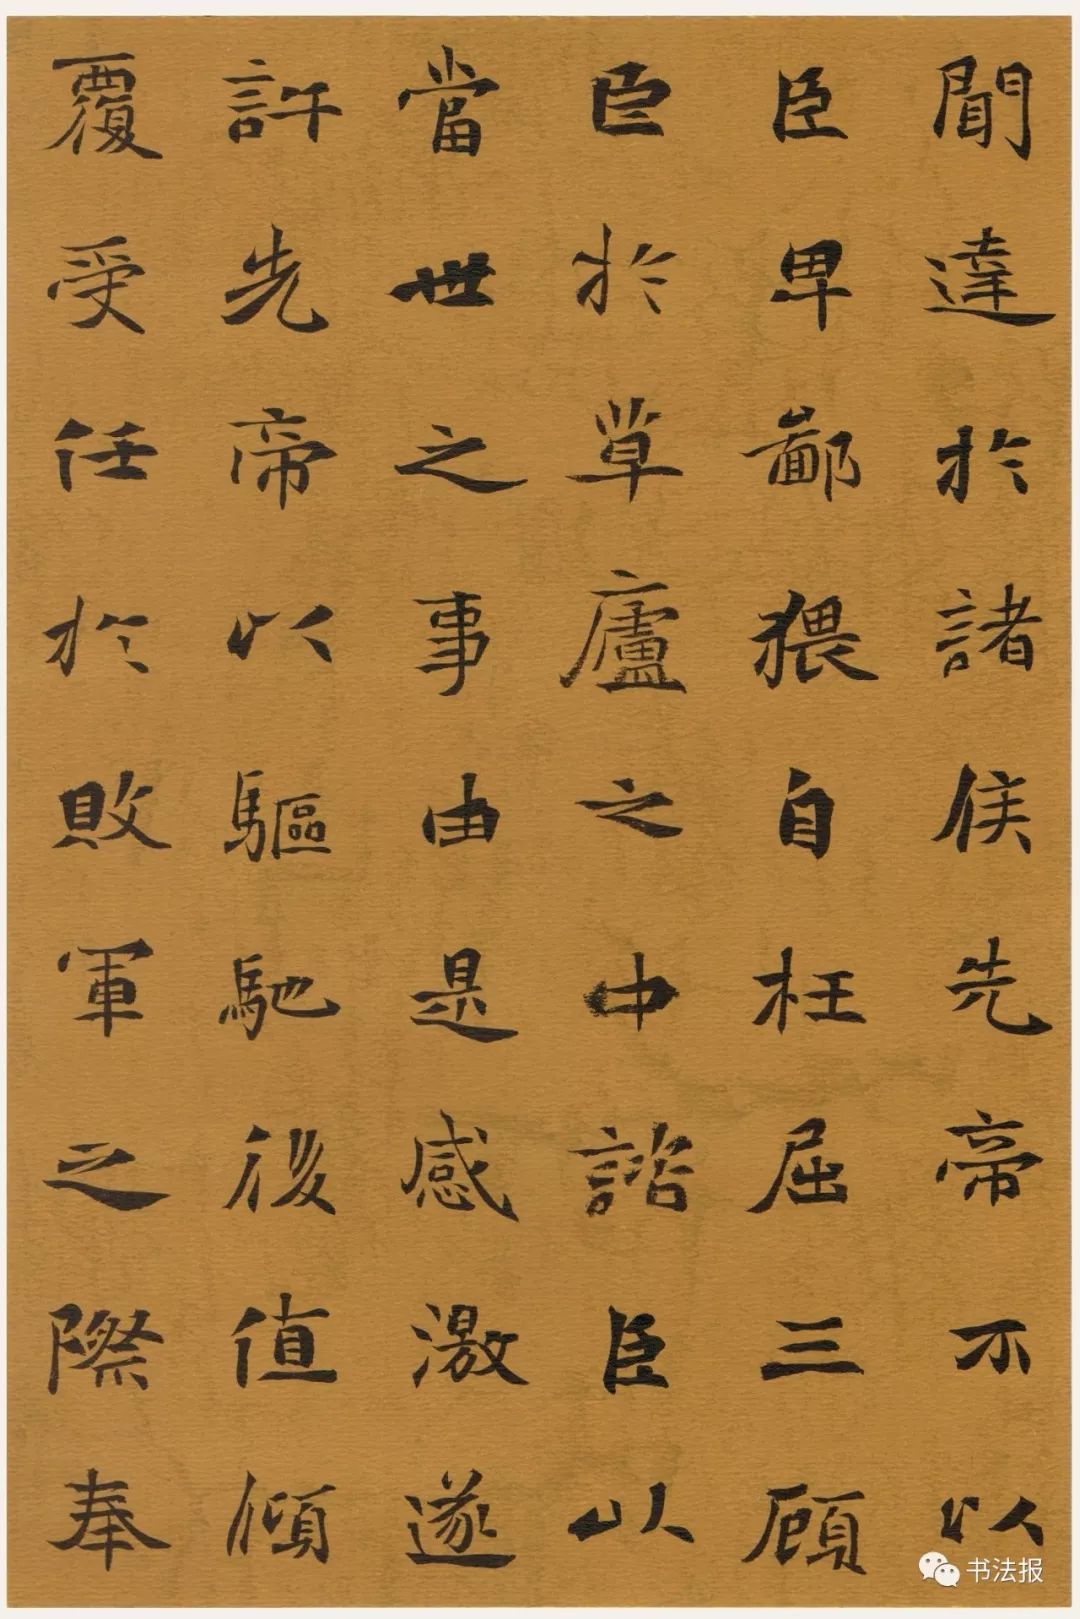 聞達於諸侯先帝不以
臣卑鄙猥自枉屈三顧
臣於草廬之中諮臣以
當世之事由是感激遂
許先帝以驅馳後值傾
覆受任於敗軍之際奉
书法报